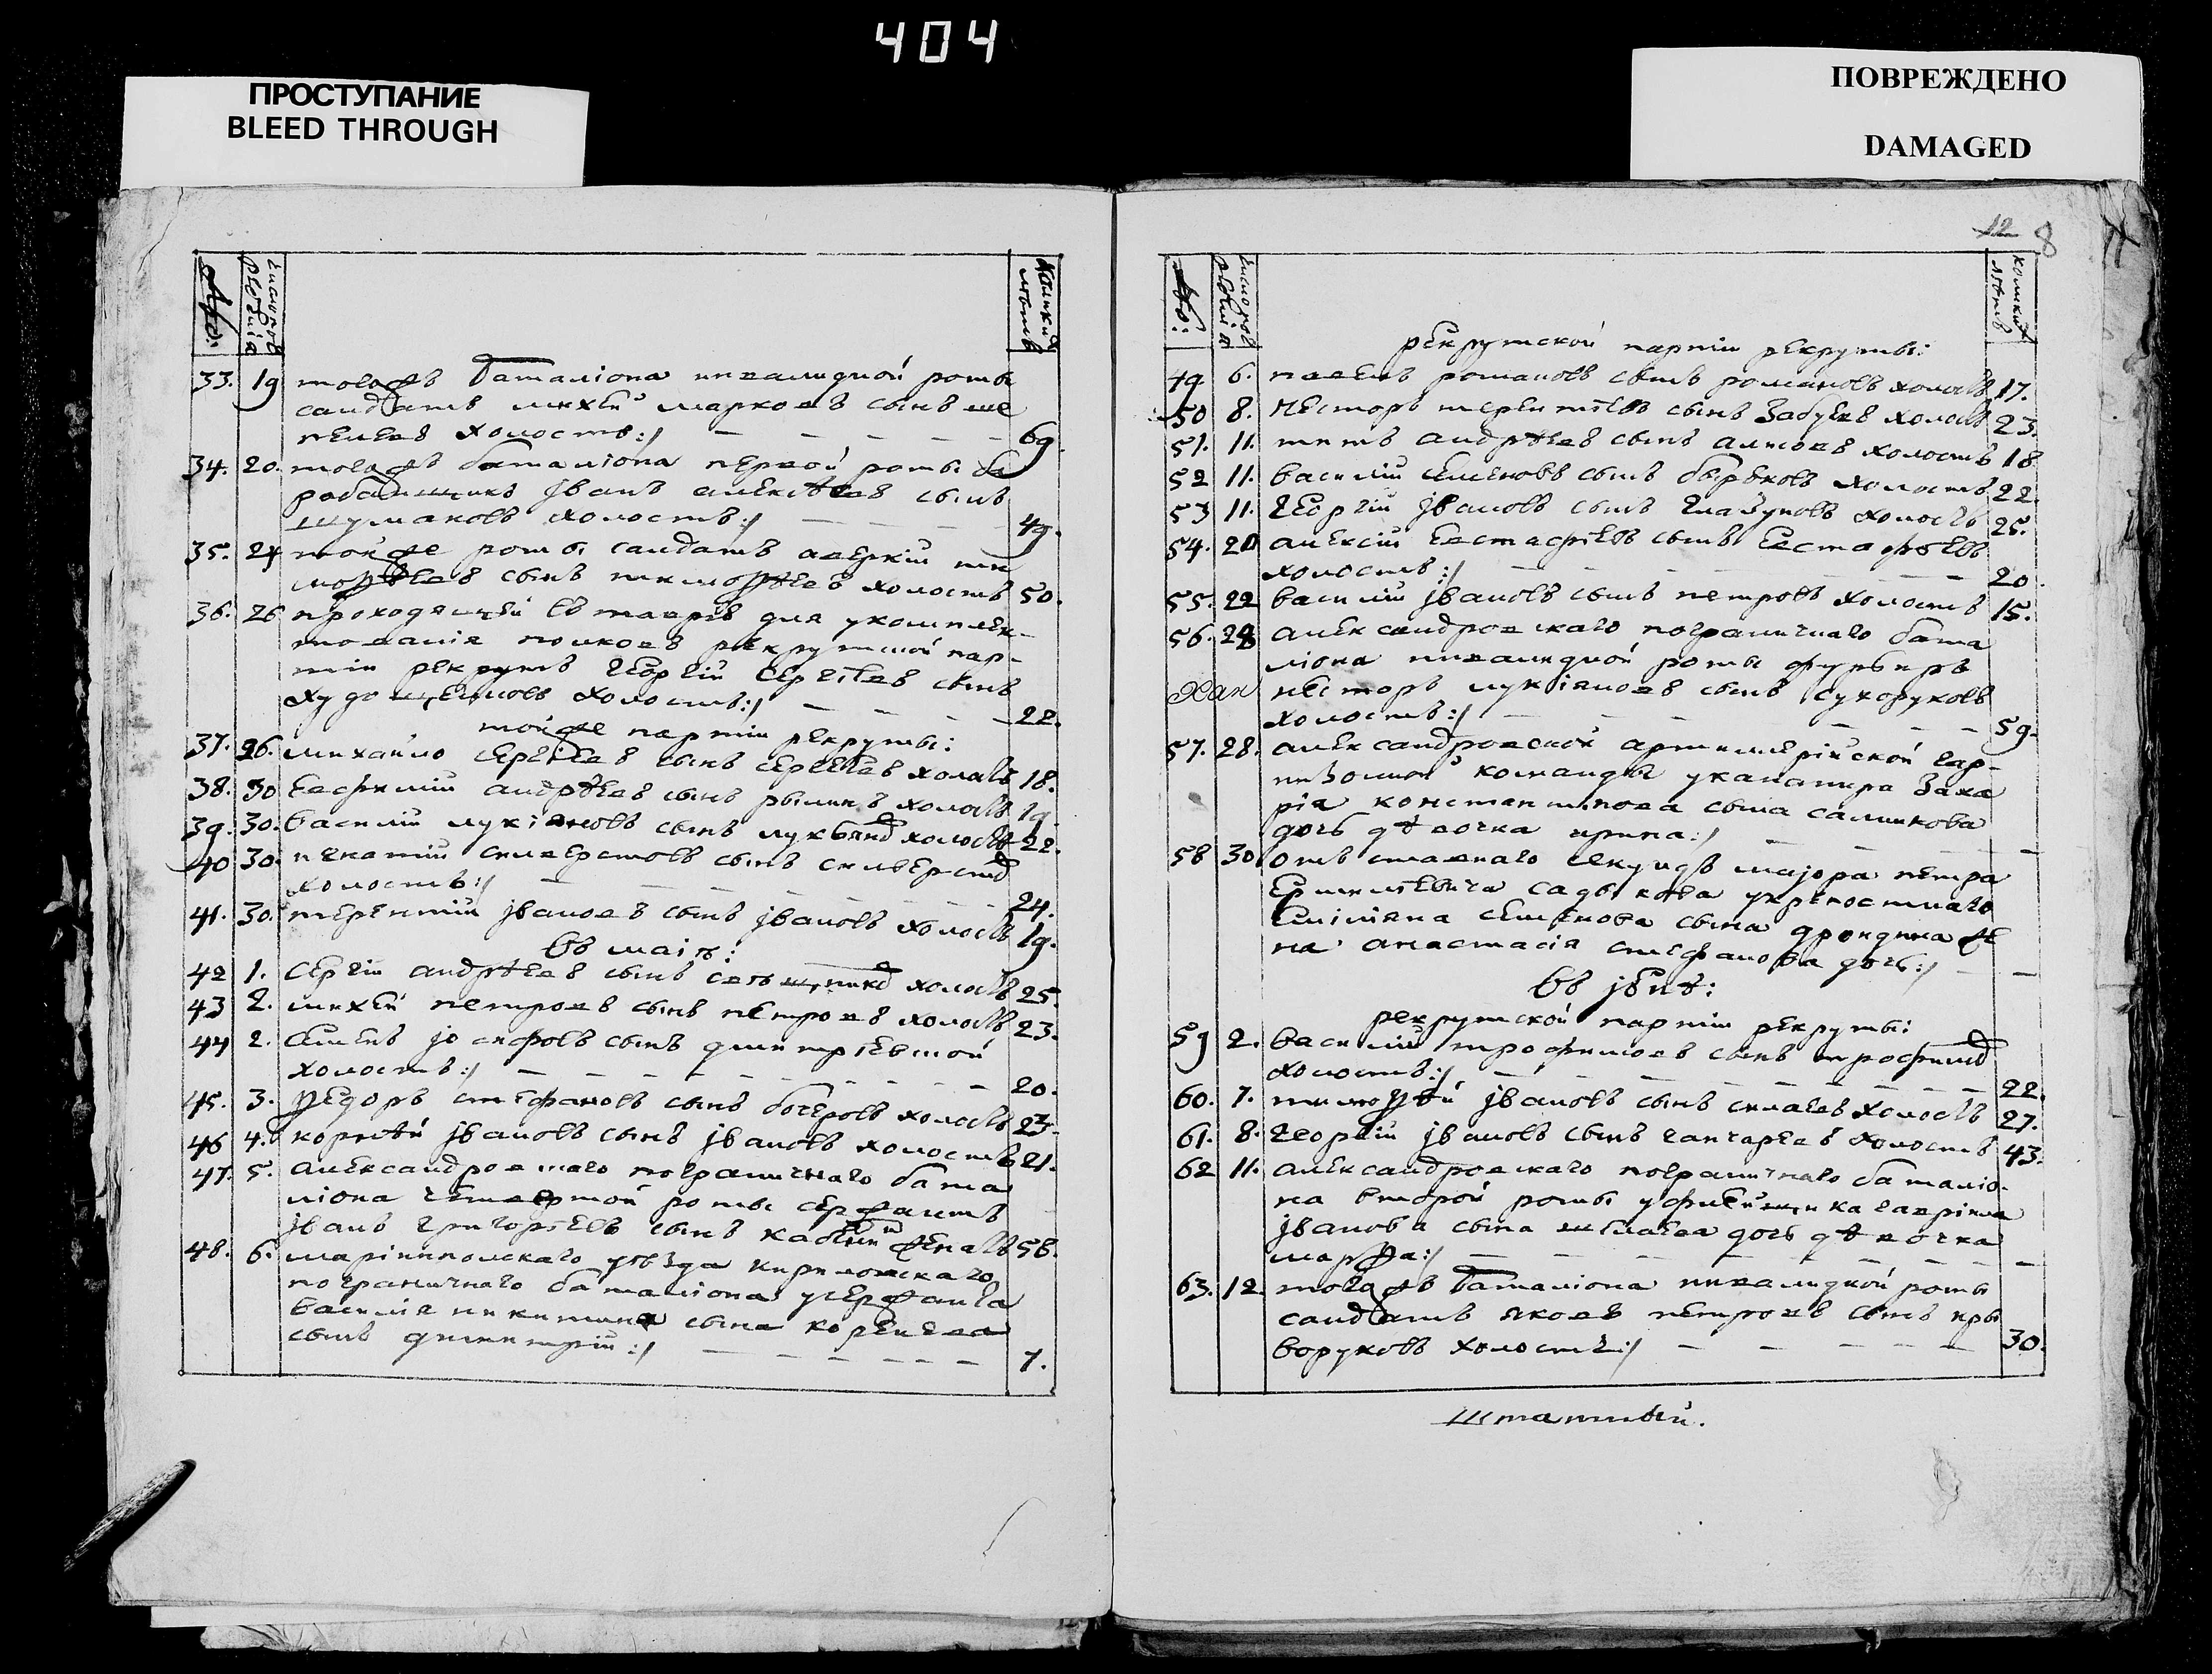 404
ПРОСТУПАНИЕ
BLEED THROUGH
ПОВРЕЖДЕНО
DAMAGED
12 8
33. 19 тогожъ баталиона инвалидной роты
салдатъ михей марковъ сынъ ше
пелевъ холостъ:/ 69
34. 20. тогожъ баталиона первой роты ба
рабанщикъ јванъ алексѣевъ сынъ
шумаковъ холостъ:/ 49.
35. 24 тойже роты салдатъ аверкій ти
моѳѣевъ сынъ тимоѳѣевъ холостъ 50.
36. 26 проходящей въ тавріе для укомплек-
тованія полковъ рекрутской пар-
тіи рекрутъ георгій сергѣевъ сынъ
худощеиновъ холостъ:/ 22.
тойже партіи рекруты:
37. 26. михайло сергѣевъ сынъ сергѣевъ холостъ 18.
38. 30 евфимій андрѣевъ сынъ рылинъ холостъ 19.
39. 30. василій лукіяновъ сынъ лукьяновъ холостъ 22.
40 30. игнатій силверстовъ сынъ силверстовъ
холостъ:/ 24.
41. 30. терентій јвановъ сынъ јвановъ холостъ 19.
Въ маіѣ:
42 1. сергій андрѣевъ сынъ холостъ 25.
43 2. михей петровъ сынъ петровъ холостъ 23.
44 2. семенъ јосифовъ сынъ
холостъ:/ 20.
45. 3. ѳедоръ стефановъ сынъ бочеровъ холостъ 23.
46 4. корнѣй јвановъ сынъ јвановъ холостъ 21.
47. 5. александровскаго пограничнаго бата
ліона четвертой роты сержантъ
јванъ григорьевъ сынъ женатъ 58.
48. 6. маріинполскаго уѣзда кириловскаго
пограничнаго баталиона усержанта
василія никитина сына коренева
сынъ димитрій:/ 7.
рекрутской партіи рекруты:
49 6. павелъ романовъ сынъ романовъ холостъ 17.
50 8. несторъ терентѣевъ сынъ холостъ 23.
51. 11. титъ андрѣевъ сынъ холостъ 18
52 11. василій семеновъ сынъ холостъ 22.
53 11. георгій јвановъ сынъ глазуновъ холостъ 25.
54. 20 алексій евстафѣевъ сынъ евстафѣевъ
холостъ:/ 20.
55. 22 василій јвановъ сынъ петровъ холостъ 15.
56. 28 александровскаго пограничнаго бата
ліона инвалидной роты фурьиръ
несторъ лукіяновъ сынъ сухоруковъ
холостъ:/ 59.
57. 28. александровской артиллерійской гар-
низонной команды уканапира заха
рія константинова сына салникова
дочь дѣвочка ирина:/
58 30 отъ ставнаго секундъ маіора петра
ермилѣевича садыкова укрепостнаго
емиліяна семенова сына дрондина же
на анастасія стефанова дочь:/
Въ јюнѣ:
рекрутской партіи рекруты:
59 2. василій трофимовъ сынъ трофимовъ
холостъ:/ 22.
60. 7. тимоѳѣй јвановъ сынъ холостъ 27.
61. 8. георгій јвановъ сынъ гангарѣевъ холостъ 43.
62 11. александровскаго пограничнаго баталио-
на второй роты уфлейщика гавріила
јванова сына дочь дѣвочка
марѳа:/
63. 12. тогожъ баталиона инвалидной роты
салдатъ яковъ петровъ сынъ кри
воруковъ холостъ:/ 30.